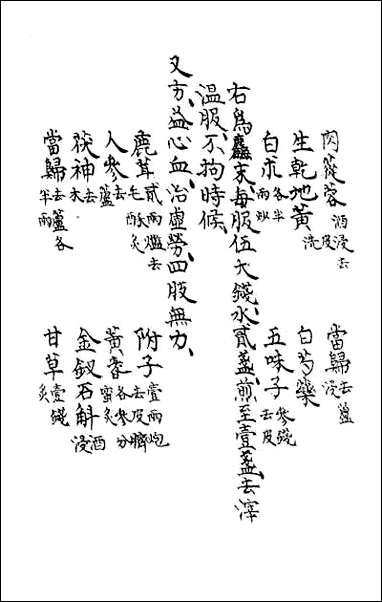 肉蓯蓉 酒浸去皮 當歸 去蘆浸
生乾地黃 洗 白芍藥
白朮 各半兩炒 五味子 參錢去皮
右為麤末、每服伍大錢、水貳盞、煎至壹盞、去滓
溫服、不拘時候、
又方、益心血、治虛勞、四肢無力、
鹿茸 貳兩爁去毛酥炙 附子 壹兩炮去皮臍
人參 去蘆 黃蓍 各參分蜜炙
茯神 去木 金釵石斛 酒浸
當歸 去蘆各半兩 甘草 炙壹錢